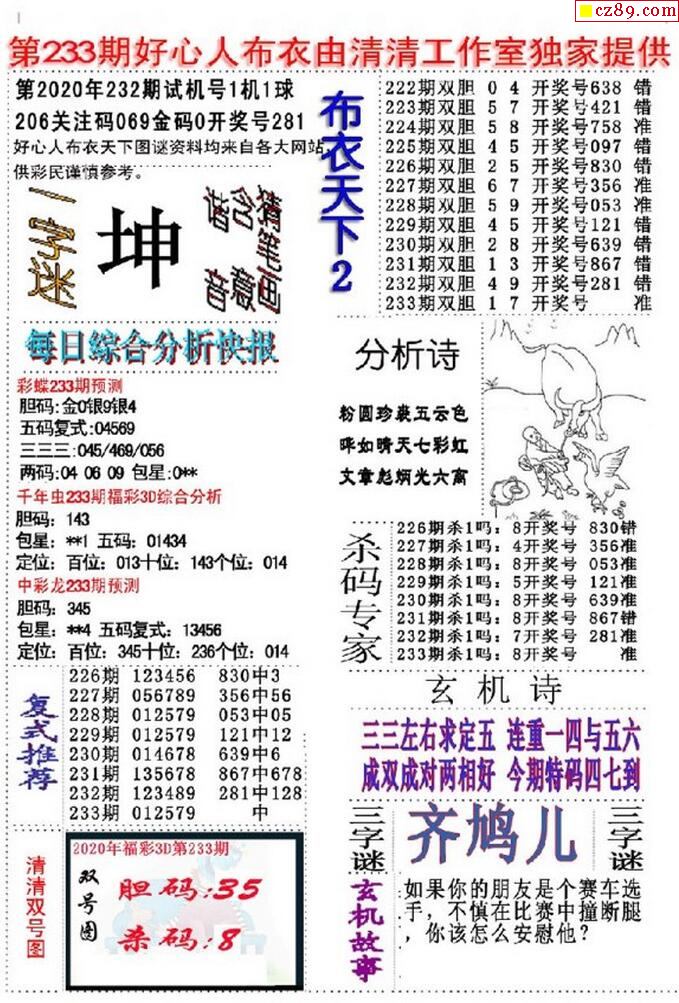 cz89.com
第233期好心人布衣由清清工作室独家提供
第2020年232期试机号1机1球
206关注码069金码0开奖号281
好心人布衣天下图谜资料均来自各大网站,
供彩民谨慎参考。
一字迷
坤
猜笔画
含意
谐音
布衣天下2
222期双胆 0 4 开奖号638 错
223期双胆 5 7 开奖号421 错
224期双胆 5 8 开奖号758 准
225期双胆 4 5 开奖号097 错
226期双胆 2 5 开奖号830 错
227期双胆 6 7 开奖号356 准
228期双胆 5 9 开奖号053 准
229期双胆 4 5 开奖号121 错
230期双胆 2 8 开奖号639 错
231期双胆 1 3 开奖号867 错
232期双胆 4 9 开奖号281 错
233期双胆 1 7 开奖号 准
每日综合分析快报
彩蝶233期预测
胆码:金0银9银4
五码复式:04569
三三三:045/469/056
两码:04 06 09 包星:0**
千年虫233期福彩3D综合分析
胆码：143
包星：**1 五码：01434
定位：百位：013十位：143个位：014
中彩龙233期预测
胆码：345
包星：**4 五码复式：13456
定位：百位：345十位：236个位：014
分析诗
粉圆珍裘五云色
晔如晴天七彩虹
文章彪炳光六离
杀码专家
226期杀1吗：8开奖号 830错
227期杀1吗：4开奖号 356准
228期杀1吗：8开奖号 053准
229期杀1吗：5开奖号 121准
230期杀1吗：8开奖号 639准
231期杀1吗：8开奖号 867错
232期杀1吗：7开奖号 281准
233期杀1吗：8开奖号 准
复式推荐
226期 123456 830中3
227期 056789 356中56
228期 012579 053中05
229期 012579 121中12
230期 014678 639中6
231期 135678 867中678
232期 123489 281中128
233期 012579 中
玄机诗
三三左右求定五 连重一四与五六
成双成对两相好 今期特码四七到
三字谜
齐鸠儿
三字谜
清清双号图
2020年福彩3D第233期
双号图
胆码:35
杀码:8
玄机故事
如果你的朋友是个赛车选
手，不慎在比赛中撞断腿
，你该怎么安慰他？